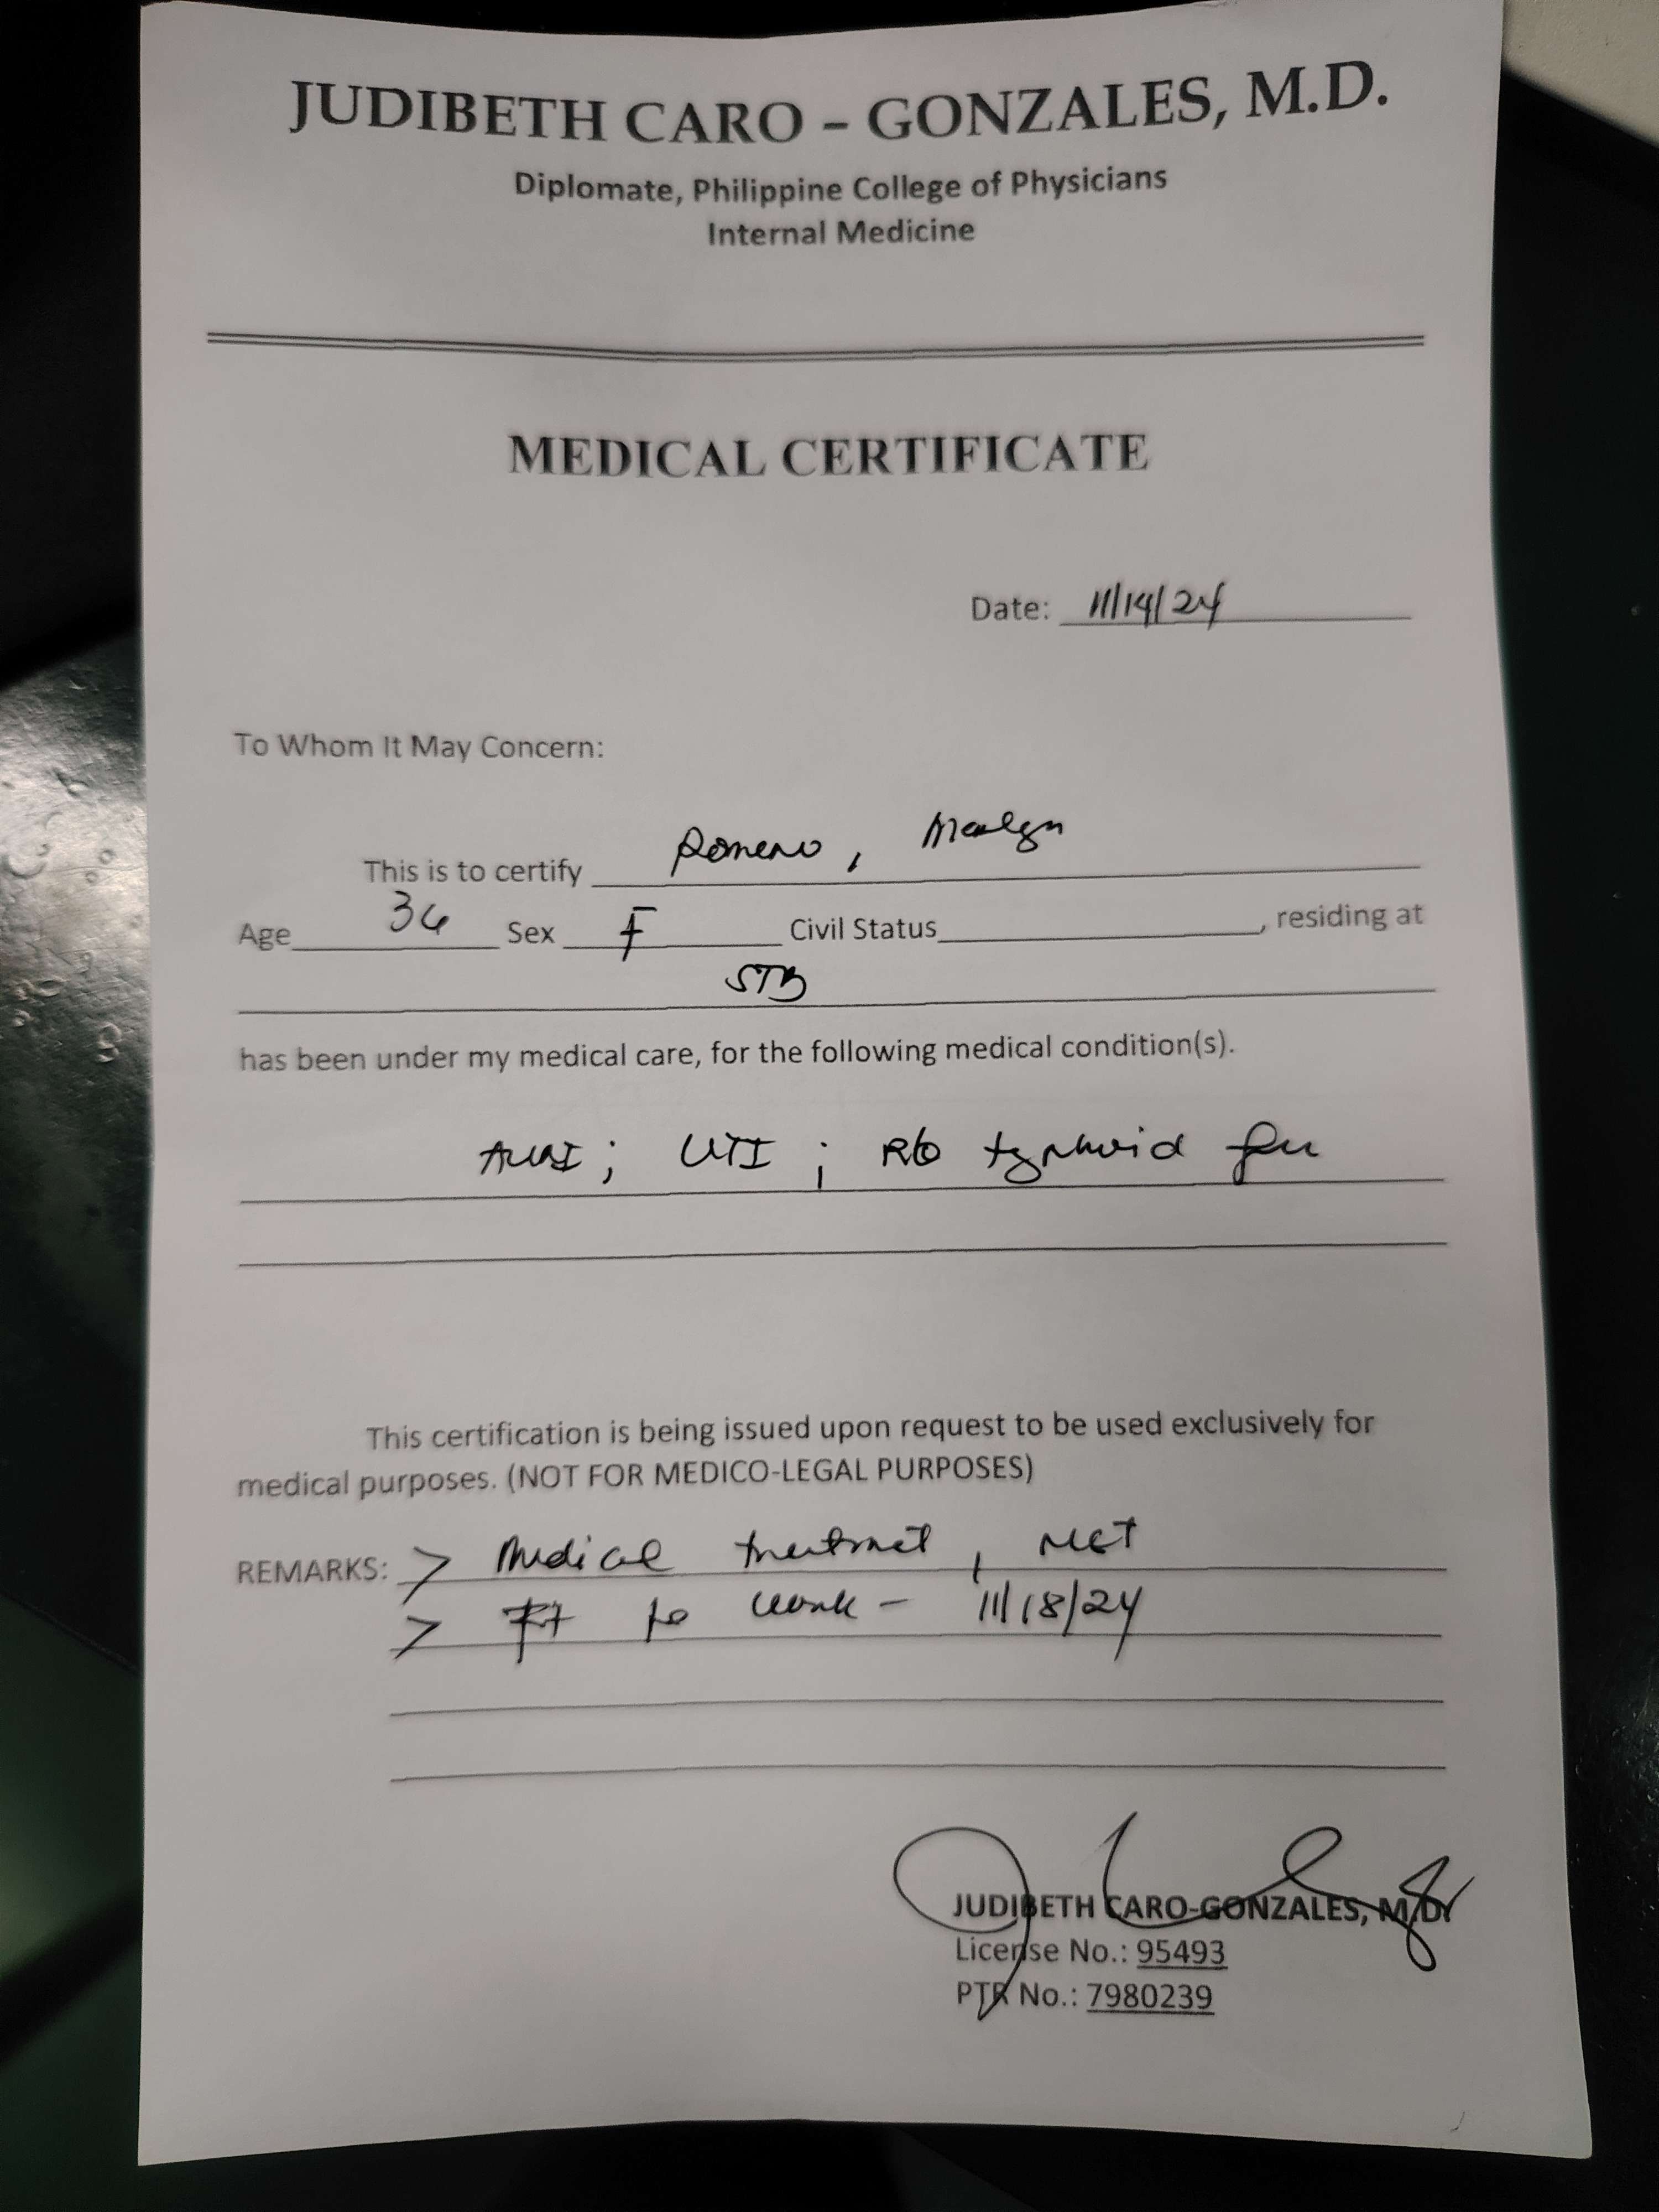 JUDIBETH CARO – GONZALES, M.D.
Diplomate, Philippine College of Physicians
Internal Medicine
MEDICAL CERTIFICATE
Date: 11/14/24
To Whom It May Concern:
This is to certify Romero,
Age 36 Sex F Civil Status , residing at
STB
has been under my medical care, for the following medical condition(s).
AURI; UTI; R/o typhoid
This certification is being issued upon request to be used exclusively for
medical purposes. (NOT FOR MEDICO-LEGAL PURPOSES)
REMARKS: > Medical treatment,
> Fit to work – 11/18/24
JUDIBETH CARO-GONZALES, M.D.
License No.: 95493
PTR No.: 7980239